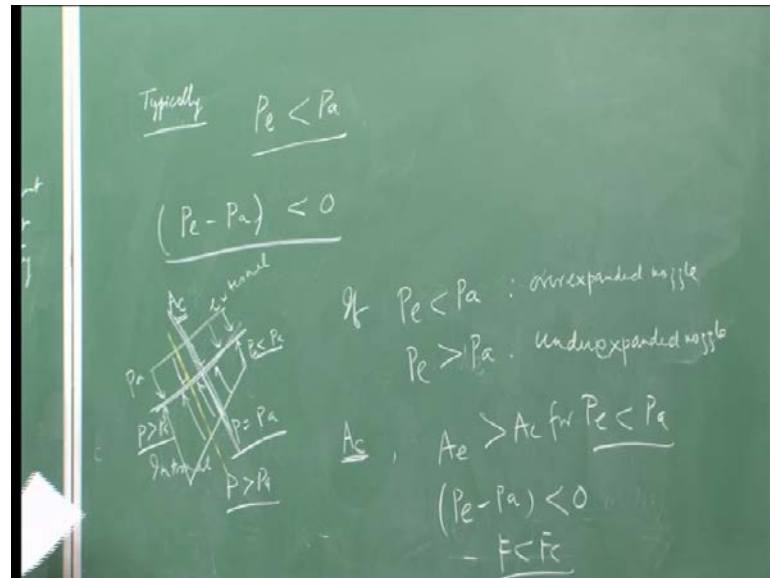 Typically Pe < Pa
(Pe - Pa) < 0
Ac
external
Pa
Pe < Pa
P > Pa
P = Pa
Internal
P > Pa
If Pe < Pa : overexpanded nozzle
Pe > Pa . underexpanded nozzle
Ac , Ae > Ac for Pe < Pa
(Pe - Pa) < 0
- F < Fc